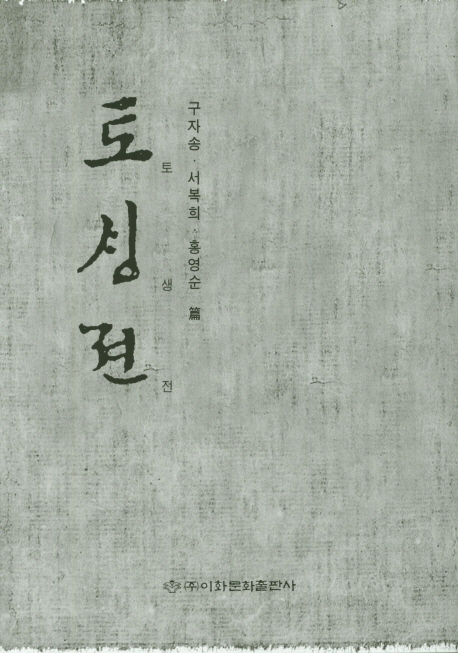 토ᄉᆡᆼ젼
토생전
구자송·서복희·홍영순 篇
(주)이화문화출판사